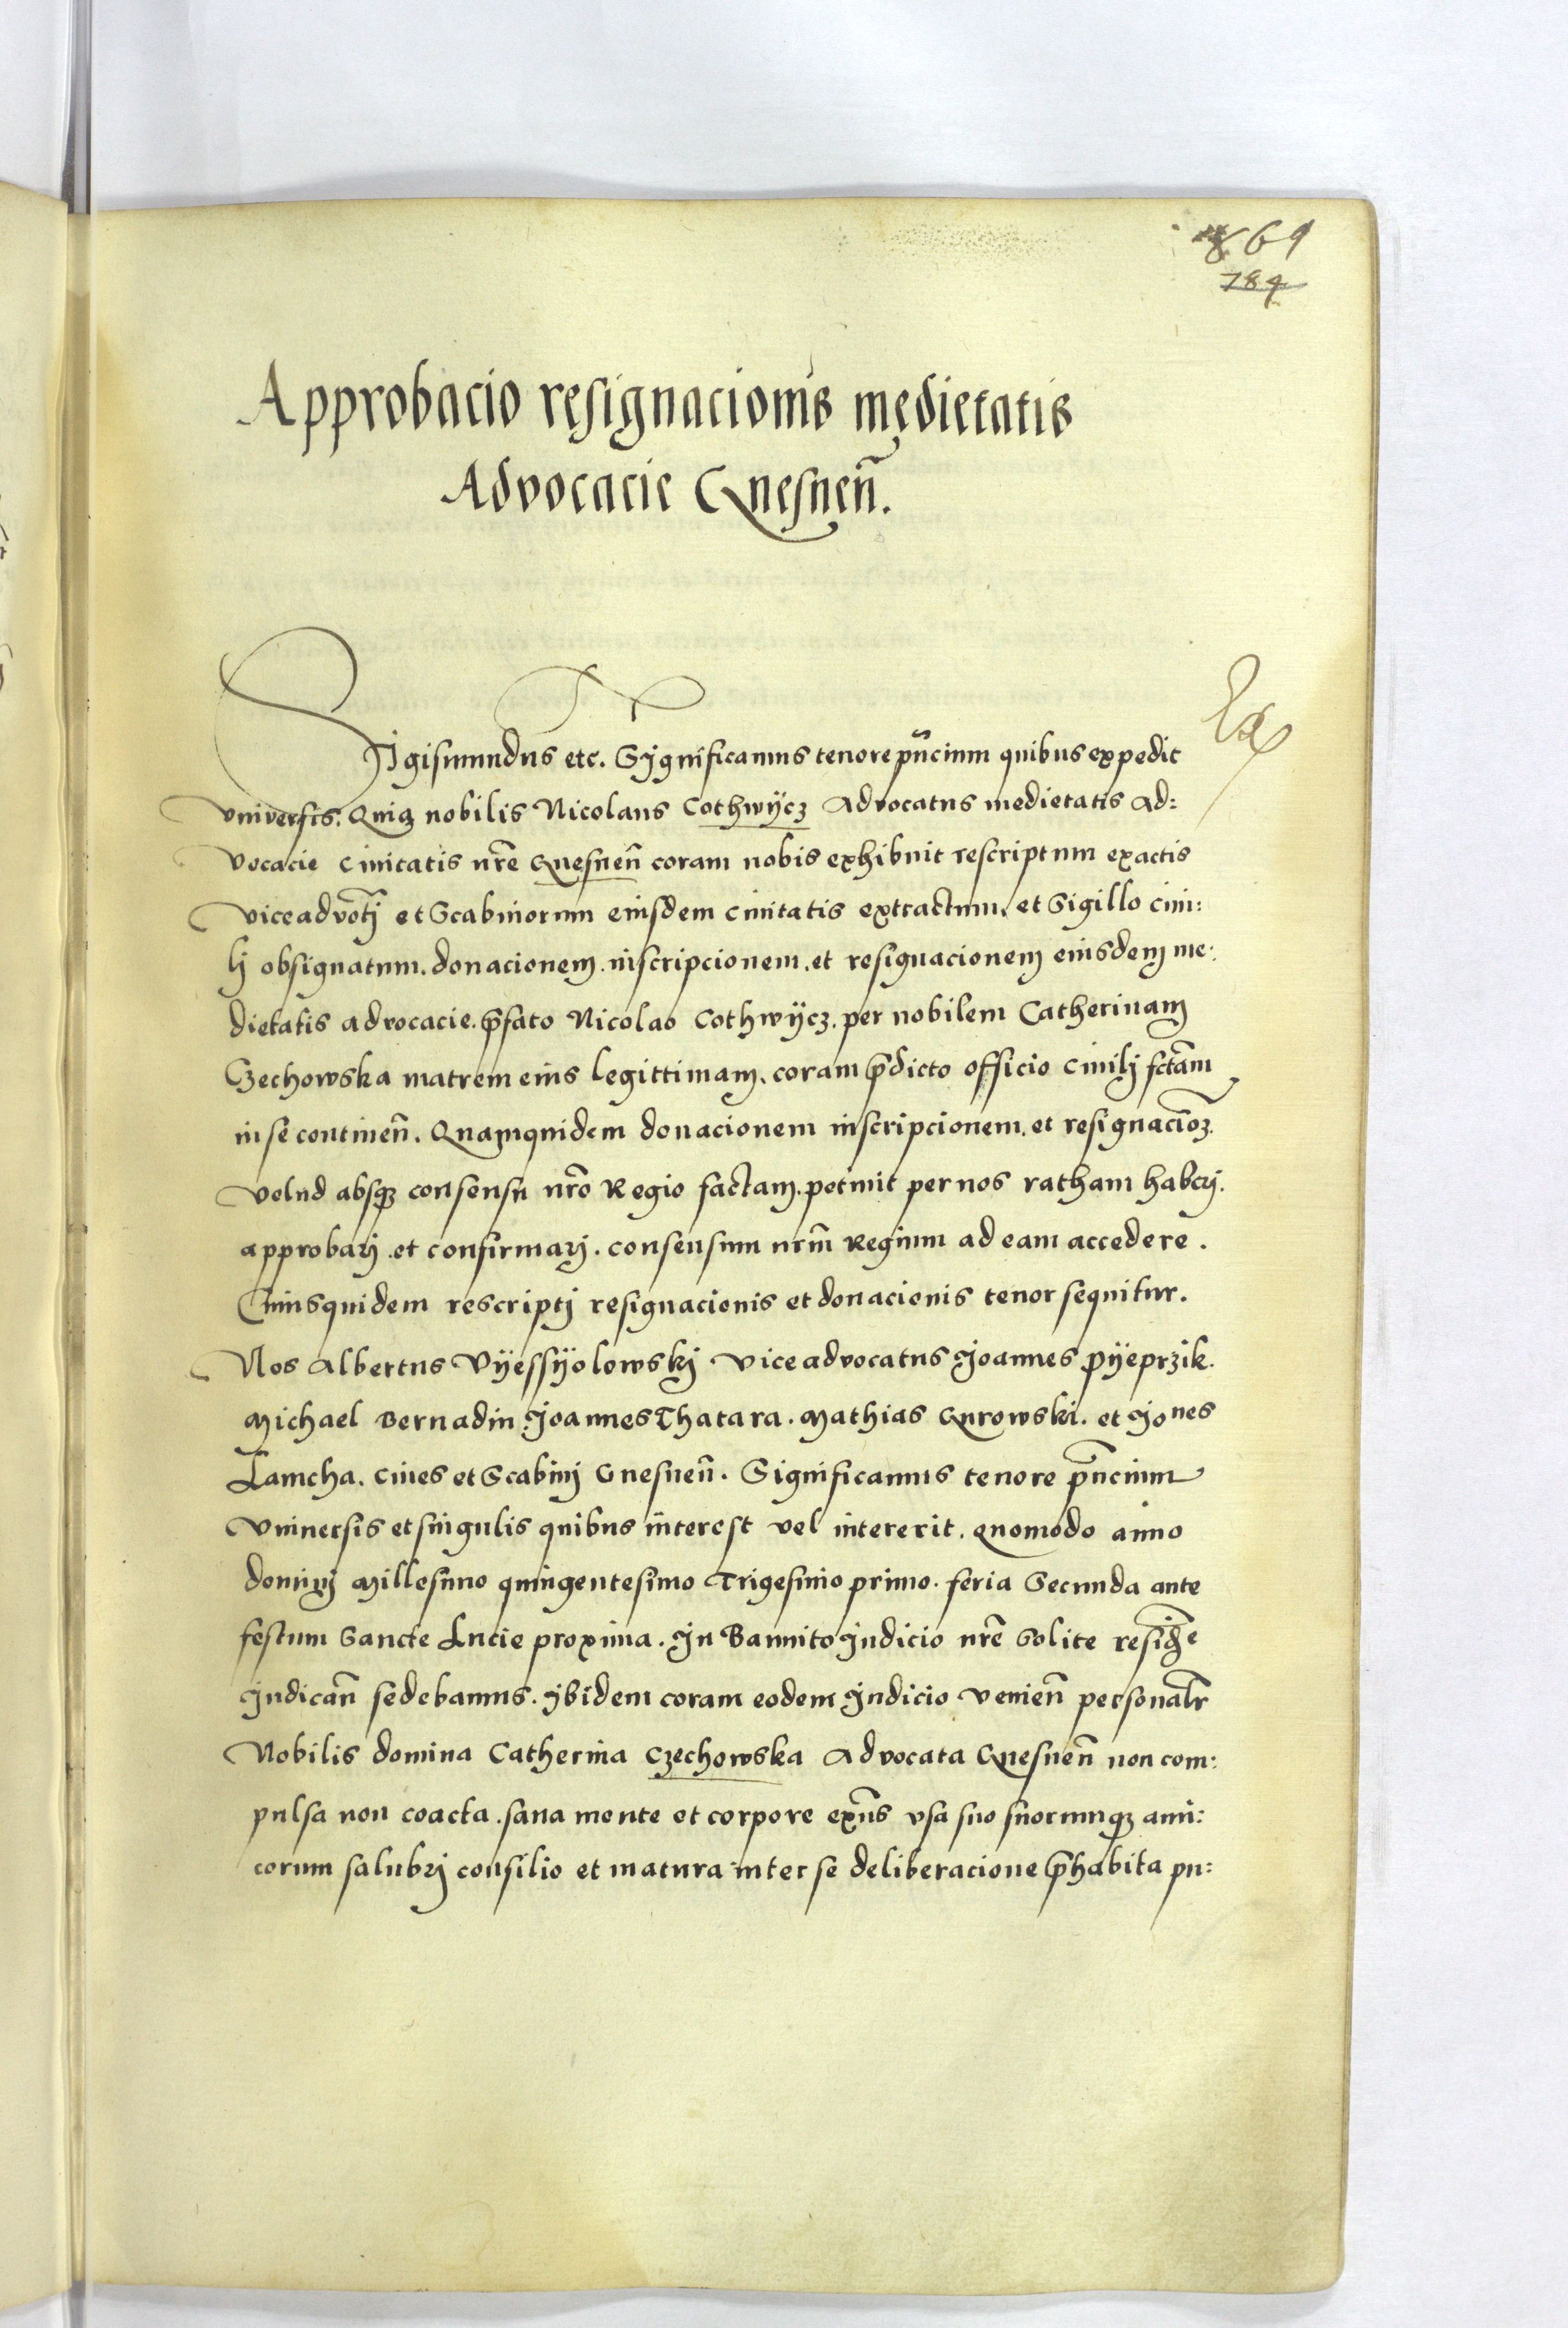 869
784
Approbacio resignacionis medietatis
Advocacie Gnesneñ.
Sigismundus etc. Significamus tenore pñcium quibus expedit
vniversis. Quiꝫ nobilis Nicolaus Cothwÿcz Advocatus medietatis ad:
vocacie civitatis nr̃e Gnesneñ coram nobis exhibuit rescriptum exactis
viceadvot̃j et Scabinorum eiusdem civitatis extractum, et Sigillo civi:
lj obsignatum. donacionem. inscripcionem. et resignacionem eiusdem me:
dietatis advocacie. p̃fato Nicolao Cothwÿcz. per nobilem Catherinam
Czechowska matrem eius legittimam. coram p̃dicto officio civilj fctãm
in se contineñ. Quamquidem donacionem inscripcionem. et resignaciõꝫ.
velud absqꝫ consensu nr̃o Regio factam. petiuit per nos ratham haberj.
approbarj. et confirmarj. consensum nrm̃ Regium ad eam accedere.
Cuiusquidem rescriptj resignacionis et donacionis tenor sequitur.
Nos Albertus Vÿessÿolowskj viceadvocatus Joannes Pÿeprzik.
Michael Bernadin Joannes Thatara. Mathias Gurowski. et Jones
Lamcha. cives et Scabinj Gnesneñ. Significamus tenore p̃ncium
Vniuersis et singulis quibus interest vel intererit. quomodo anno
dominj Millesimo quingentesimo Trigesimo primo. feria Secunda ante
festum Sancte Lucie proxima. In Bannito Iudicio nr̃e Solite
Iudicañ sedebamus. Ibidem coram eodem Iudicio venieñ personalr̃
Nobilis domina Catherina Czechowska Advocata Gnesneñ non com:
pulsa non coacta. sana mente et corpore exñs vsa suo suorumqꝫ ami:
corum salubrj consilio et matura inter se deliberacione p̃habita pu: